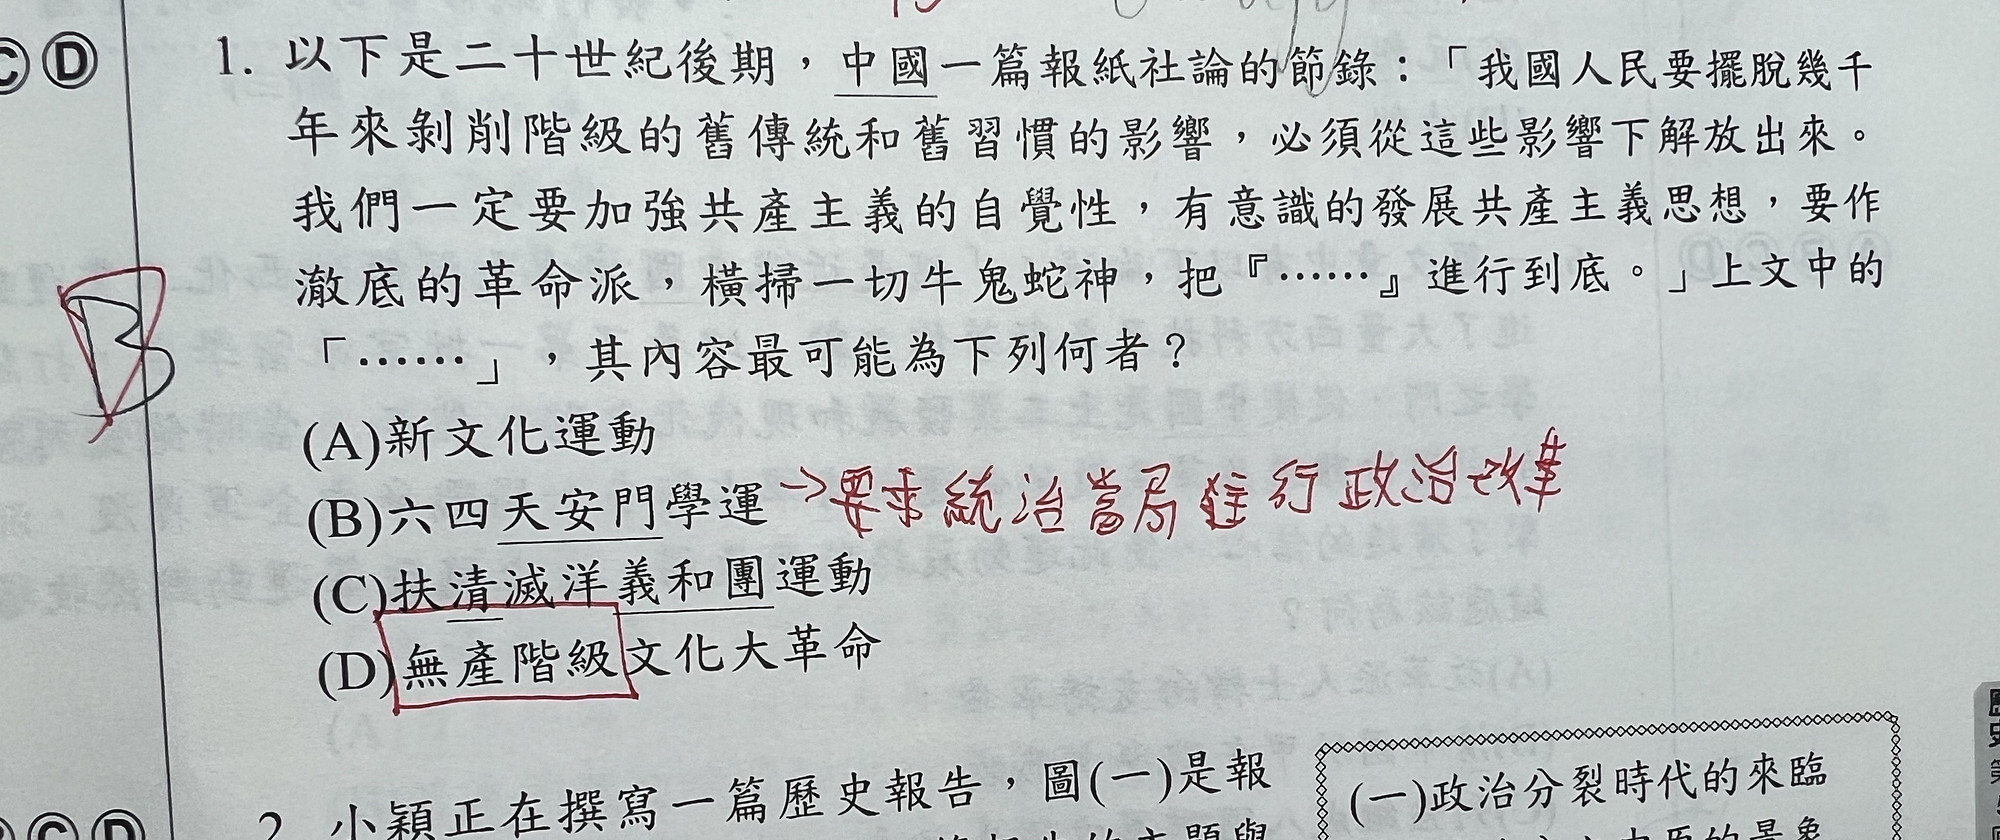 C D
1. 以下是二十世紀後期，中國一篇報紙社論的節錄：「我國人民要擺脫幾千
年來剝削階級的舊傳統和舊習慣的影響，必須從這些影響下解放出來。
我們一定要加強共產主義的自覺性，有意識的發展共產主義思想，要作
澈底的革命派，橫掃一切牛鬼蛇神，把『……』進行到底。」上文中的
「……」，其內容最可能為下列何者？
B
(A)新文化運動
(B)六四天安門學運 →要求統治當局進行政治改革
(C)扶清滅洋義和團運動
(D)無產階級文化大革命
C D
2. 小穎正在撰寫一篇歷史報告，圖(一)是報
(一)政治分裂時代的來臨
歷史